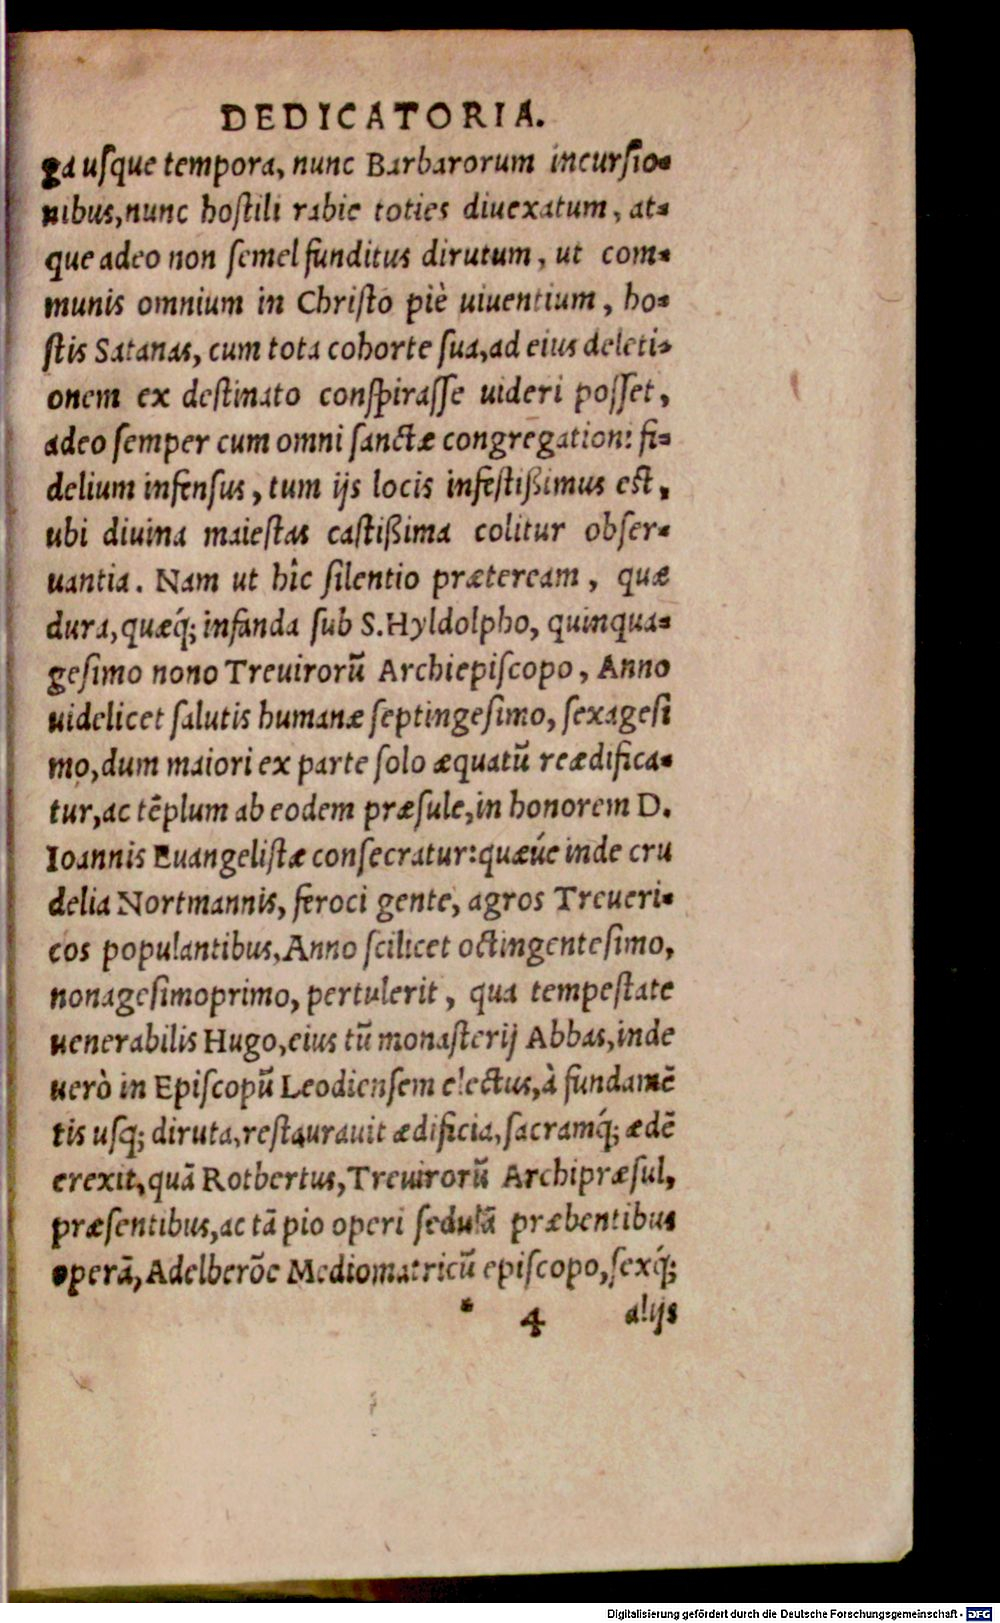 DEDICATORIA.
ga uſque tempora, nunc Barbarorum incurſio-
nibus, nunc hoſtili rabie toties diuexatum, at-
que adeo non ſemel funditus dirutum, ut com-
munis omnium in Chriſto piè uiuentium, ho-
ſtis Satanas, cum tota cohorte ſua, ad eius deleti-
onem ex deſtinato conſpiraſſe uideri poſſet,
adeo ſemper cum omni ſanctæ congregationi fi-
delium infenſus, tum ijs locis infeſtißimus eſt,
ubi diuina maieſtas caſtißima colitur obſer-
uantia. Nam ut hîc ſilentio præteream, quæ
dura, quæq́; infanda ſub S. Hyldolpho, quinqua-
geſimo nono Treuirorũ Archiepiſcopo, Anno
uidelicet ſalutis humanæ ſeptingeſimo, ſexageſi
mo, dum maiori ex parte ſolo æquatũ reædifica-
tur, ac tẽplum ab eodem præſule, in honorem D.
Ioannis Euangeliſtæ conſecratur: quæúe inde cru
delia Nortmannis, feroci gente, agros Treueri-
cos populantibus, Anno ſcilicet octingenteſimo,
nonageſimoprimo, pertulerit, qua tempeſtate
uenerabilis Hugo, eius tũ monaſterij Abbas, inde
uerò in Epiſcopũ Leodienſem electus, à fundamẽ
tis uſq; diruta, reſtaurauit ædificia, ſacramq́; ædẽ
erexit, quã Rotbertus, Treuirorũ Archipræſul,
præſentibus, ac tã pio operi ſedulã præbentibus
operã, Adelberõe Mediomatricũ epiſcopo, ſexq́;
* 4 alijs
Digitalisierung gefördert durch die Deutsche Forschungsgemeinschaft - DFG